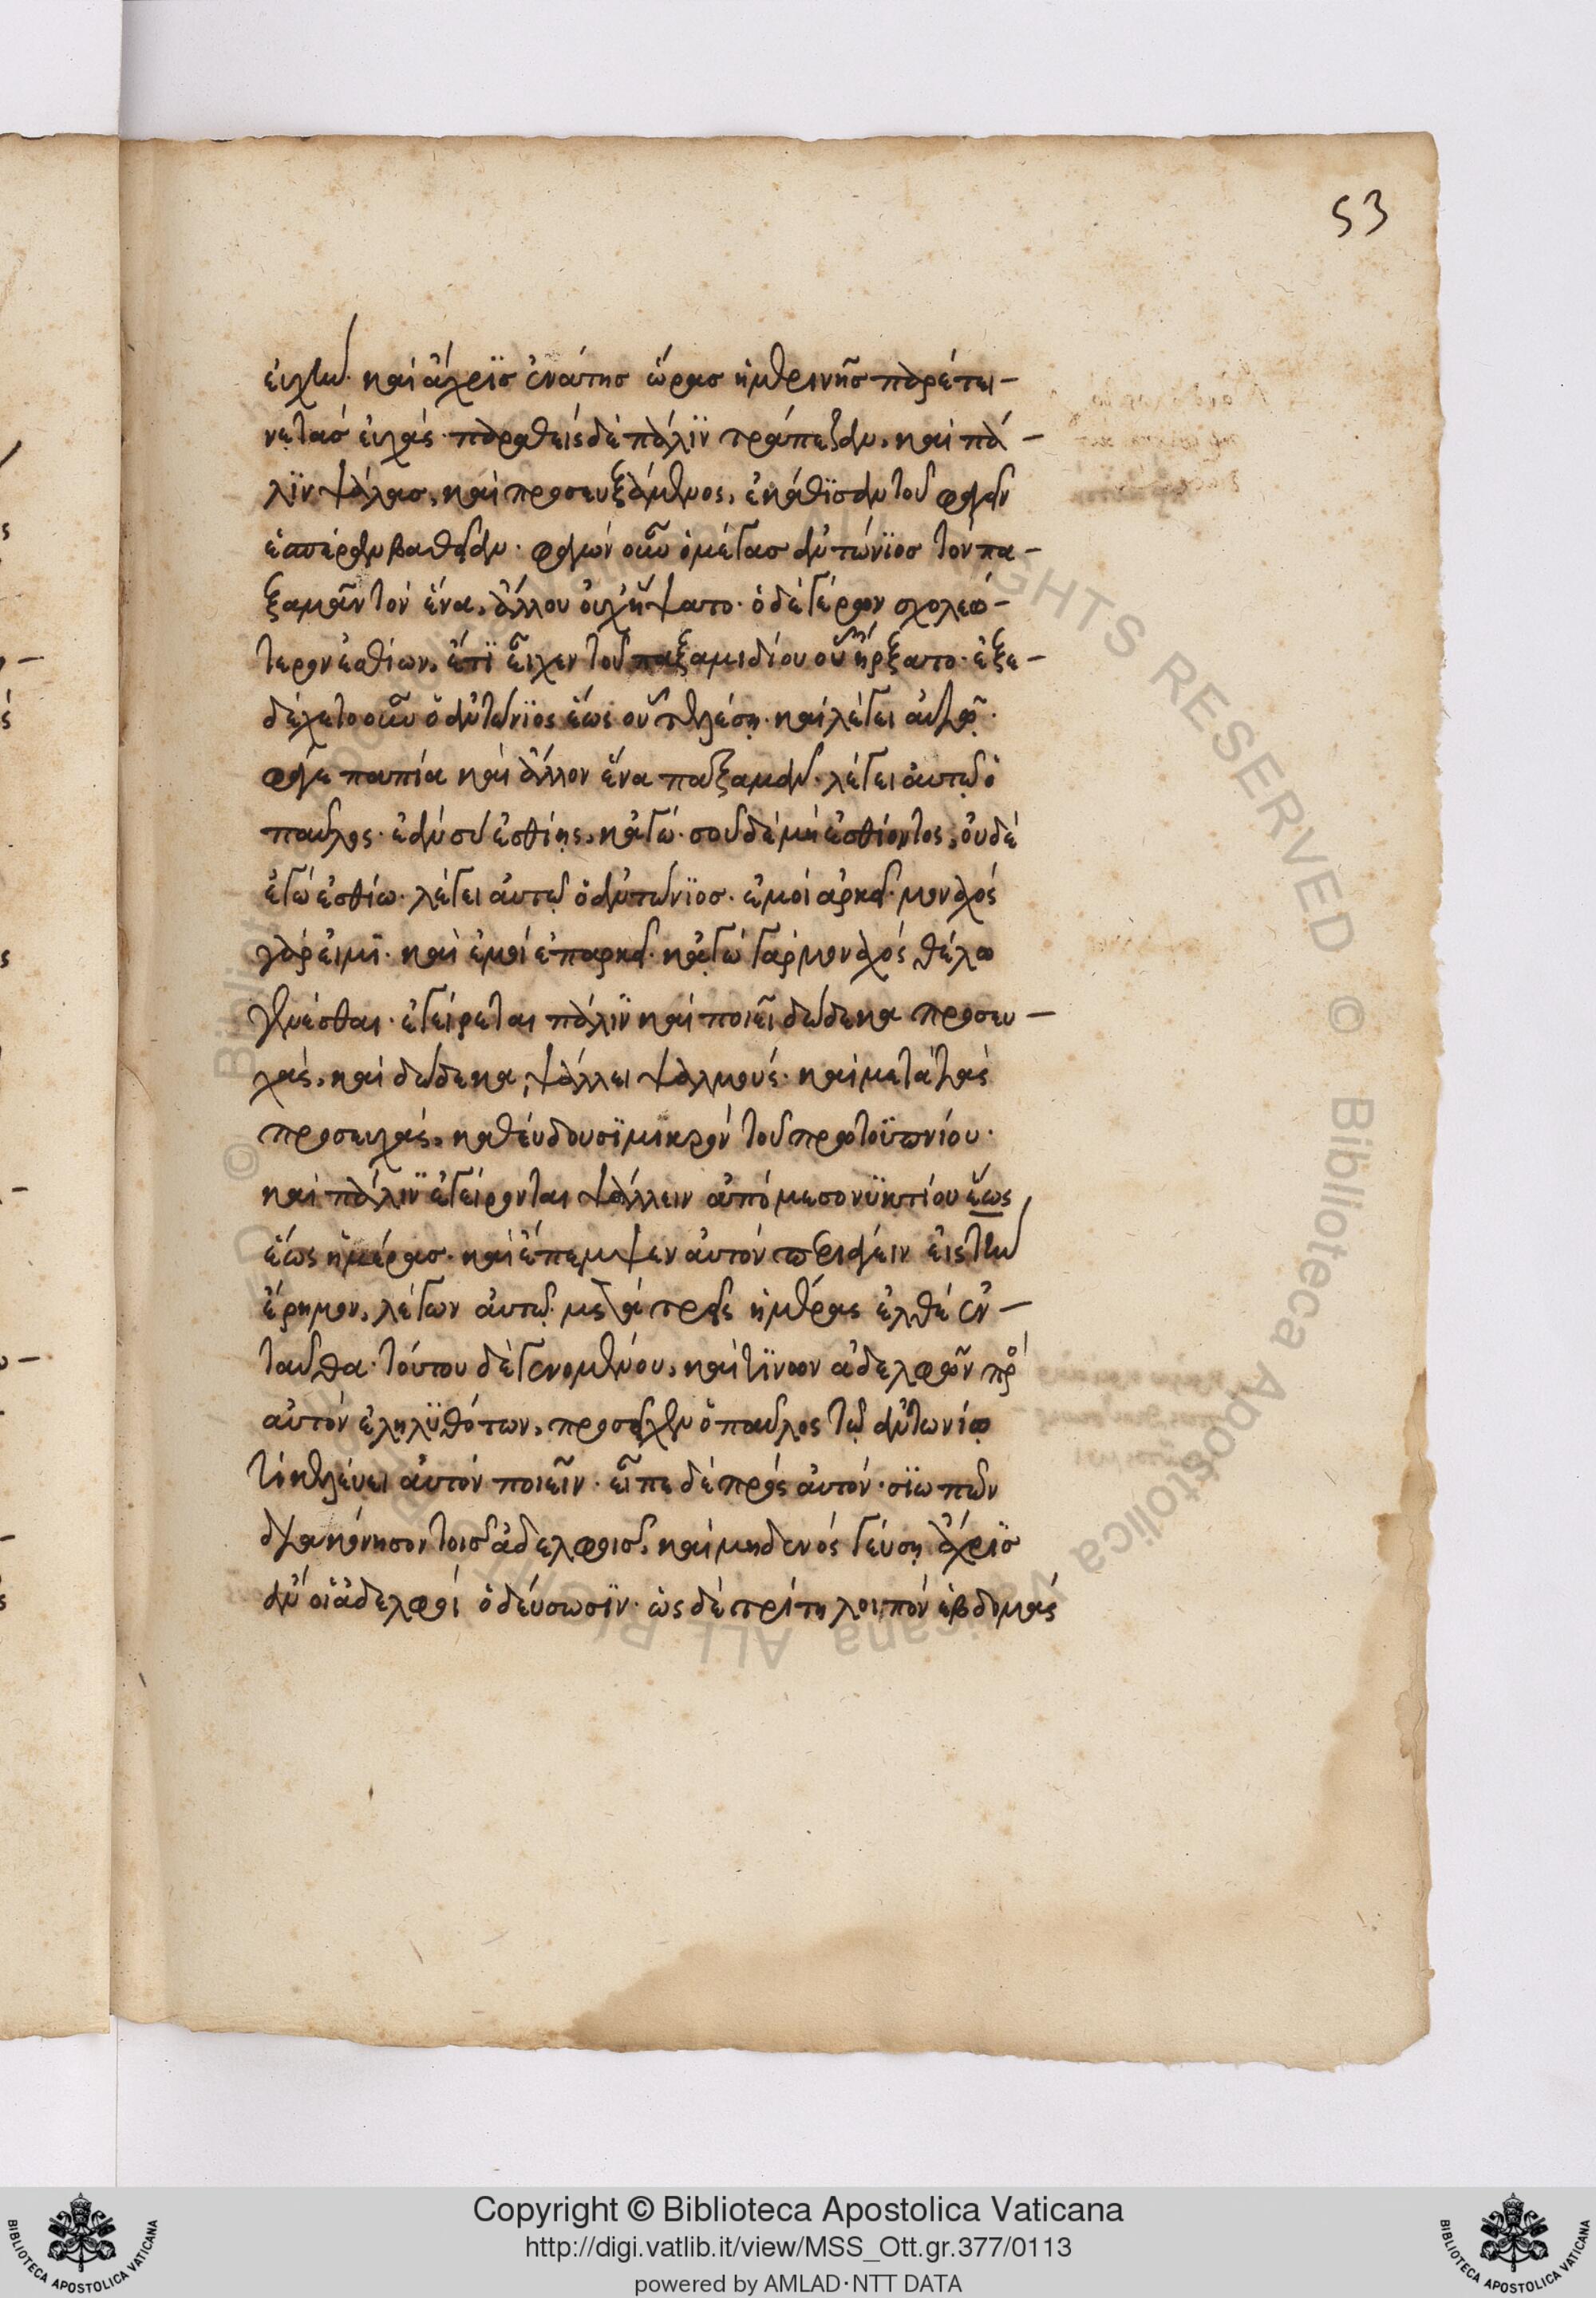 53
εὐχήν· καὶ ἄχρϊς ἐνάτης ὥρας ἡμερινῆς παρέτει–
νε τὰς εὐχάς· παραθεὶς δὲ πάλϊν τράπεζαν, καὶ πά–
λϊν ψάλλας, καὶ προσευξάμενος, ἐκάθϊσαν τοῦ φαγεῖν
ἑσπέραν βαθεῖαν· φαγὼν οὖν ὁ μέγας ἀντώνϊος τὸν πα–
ξαμᾶν τὸν ἕνα, ἄλλου οὐχ ἥψατο· ὁ δὲ γέρων σχολεώ–
τερον ἐσθίων, ἔτϊ εἶχεν τοῦ παξαμιδίου οὗ ἤρξατο· ἐξε–
δέχετο οὖν ὁ ἀντώνϊος ἕως οὗ τελέσῃ· καὶ λέγει αὐτῷ·
φάγε παπία καὶ ἄλλον ἕνα παξαμᾶν· λέγει αὐτῷ ὁ
παῦλος· ἐὰν σὺ ἐσθίῃς, κἀγώ· σοῦ δὲ μὴ ἐσθίοντος, οὐδὲ
ἐγὼ ἐσθίω· λέγει αὐτῷ ὁ ἀντώνϊος· ἐμοὶ ἀρκεῖ· μοναχὸς
γάρ εἰμϊ· καὶ ἐμοὶ ἐπαρκεῖ· κἀγὼ γὰρ μοναχὸς θέλω
γενέσθαι· ἐγείρεται πάλϊν καὶ ποιεῖ δώδεκα προσευ–
χάς, καὶ δώδεκα ψάλλει ψαλμούς· καὶ μετὰ τὰς
προσευχάς, καθεύδουσϊ μϊκρὸν τοῦ πρωτοϋπνίου·
καὶ πάλϊν ἐγείρονται ψάλλειν ἀπὸ μεσονϋκτίου ἕως
ἕως ἡμέρας· καὶ ἔπεμψεν αὐτὸν περιάγειν εἰς τὴν
ἔρημον, λέγων αὐτῷ· μετὰ τρεῖς ἡμέρας ἐλθὲ ἐν–
ταῦθα· τούτου δὲ γενομένου, καὶ τϊνων ἀδελφῶν πρὸς
αὐτὸν ἐληλϋθότων, προσεῖχεν ὁ παῦλος τῷ ἀντωνίῳ
τί κελεύει αὐτὸν ποιεῖν· εἶπε δὲ πρὸς αὐτόν· σϊωπῶν
διακόνησον τοῖς ἀδελφοῖς, καὶ μηδενὸς γεύσῃ ἄχρϊς
ἂν οἱ ἀδελφοὶ ὁδεύσωσϊν· ὡς δὲ τρίτη λοιπὸν ἑβδομὰς
Copyright © Biblioteca Apostolica Vaticana
http://digi.vatlib.it/view/MSS_Ott.gr.377/0113
powered by AMLAD·NTT DATA